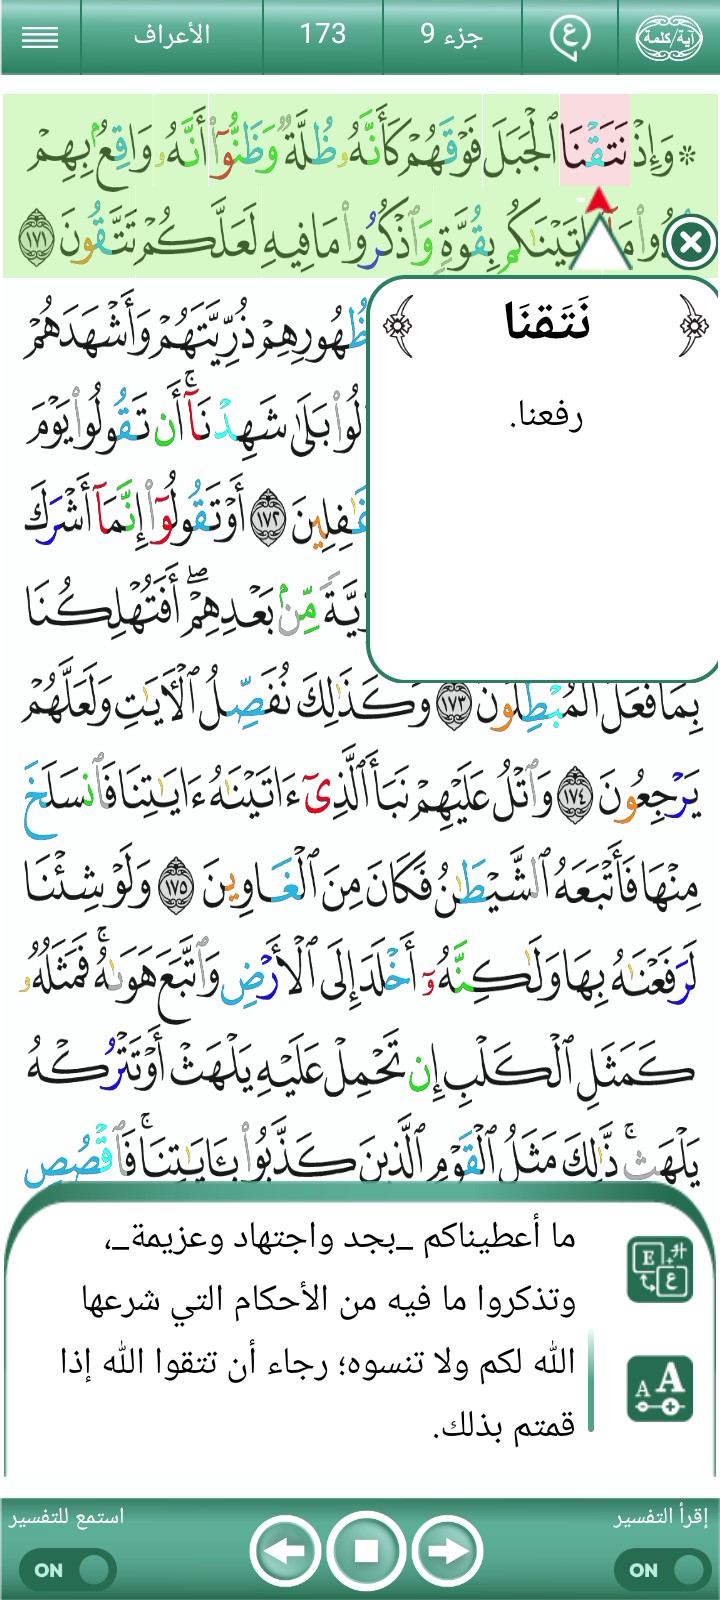 آية/كلمة
ع
جزء 9
173
الأعراف
۞ وَإِذْ نَتَقْنَا ٱلْجَبَلَ فَوْقَهُمْ كَأَنَّهُۥ ظُلَّةٌ وَظَنُّوٓا۟ أَنَّهُۥ وَاقِعٌۢ بِهِمْ
ءَاتَيْنَـٰكُم بِقُوَّةٍ وَٱذْكُرُوا۟ مَا فِيهِ لَعَلَّكُمْ تَتَّقُونَ ١٧١
نَتَقنَا
رفعنا.
ظُهُورِهِمْ ذُرِّيَّتَهُمْ وَأَشْهَدَهُمْ
بَلَىٰ شَهِدْنَآ ۚ أَن تَقُولُوا۟ يَوْمَ
غَـٰفِلِينَ ١٧٢ أَوْ تَقُولُوٓا۟ إِنَّمَآ أَشْرَكَ
مِّنۢ بَعْدِهِمْ ۖ أَفَتُهْلِكُنَا
بِمَا فَعَلَ ٱلْمُبْطِلُونَ ١٧٣ وَكَذَٰلِكَ نُفَصِّلُ ٱلْـَٔايَـٰتِ وَلَعَلَّهُمْ
يَرْجِعُونَ ١٧٤ وَٱتْلُ عَلَيْهِمْ نَبَأَ ٱلَّذِىٓ ءَاتَيْنَـٰهُ ءَايَـٰتِنَا فَٱنسَلَخَ
مِنْهَا فَأَتْبَعَهُ ٱلشَّيْطَـٰنُ فَكَانَ مِنَ ٱلْغَاوِينَ ١٧٥ وَلَوْ شِئْنَا
لَرَفَعْنَـٰهُ بِهَا وَلَـٰكِنَّهُۥٓ أَخْلَدَ إِلَى ٱلْأَرْضِ وَٱتَّبَعَ هَوَىٰهُ ۚ فَمَثَلُهُۥ
كَمَثَلِ ٱلْكَلْبِ إِن تَحْمِلْ عَلَيْهِ يَلْهَثْ أَوْ تَتْرُكْهُ
يَلْهَث ۚ ذَّٰلِكَ مَثَلُ ٱلْقَوْمِ ٱلَّذِينَ كَذَّبُوا۟ بِـَٔايَـٰتِنَا ۚ فَٱقْصُصِ
ما أعطيناكم _بجد واجتهاد وعزيمة_،
وتذكروا ما فيه من الأحكام التي شرعها
الله لكم ولا تنسوه؛ رجاء أن تتقوا الله إذا
قمتم بذلك.
E ع
A A
إقرأ التفسير
استمع للتفسير
ON
ON